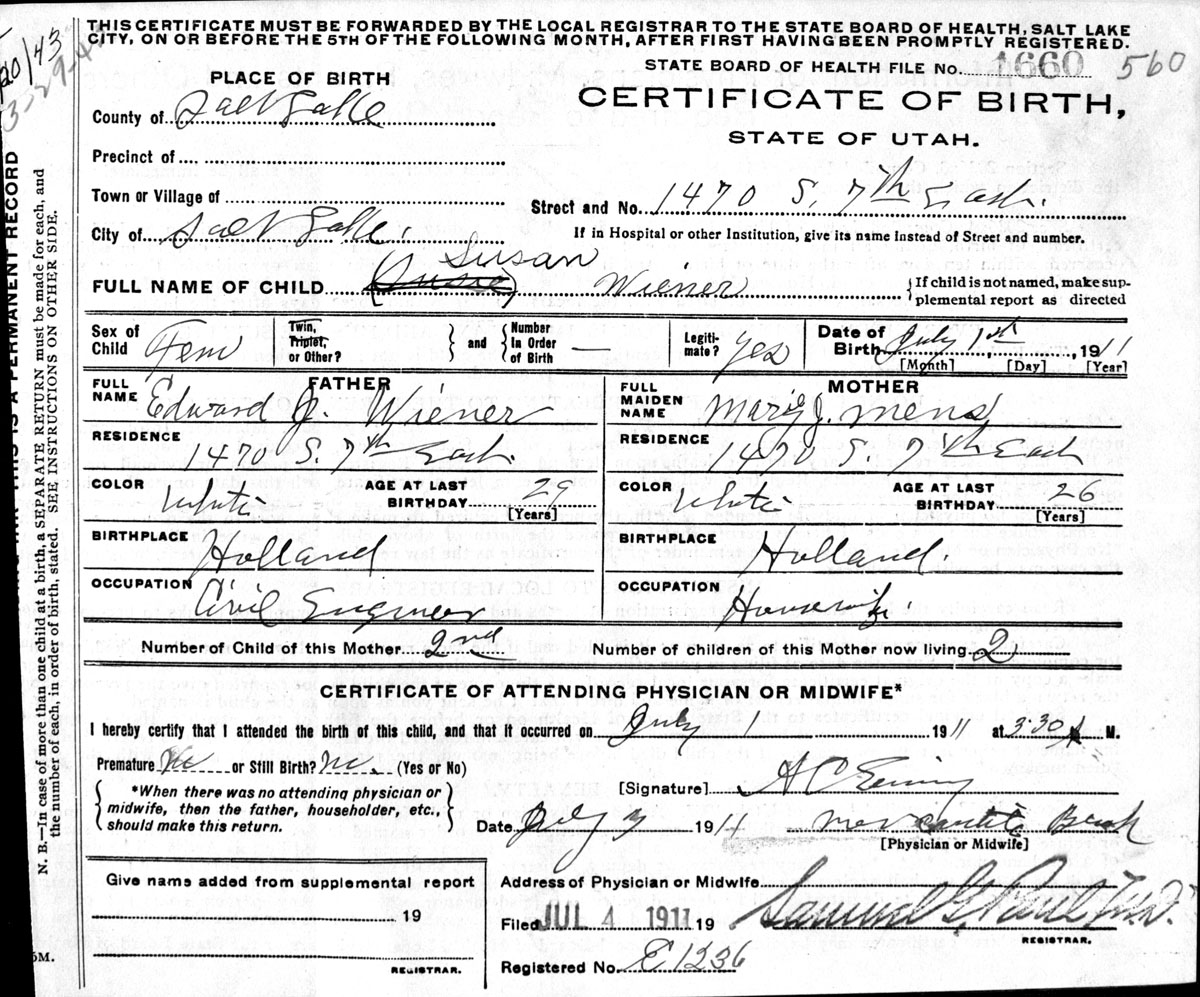 THIS CERTIFICATE MUST BE FORWARDED BY THE LOCAL REGISTRAR TO THE STATE BOARD OF HEALTH, SALT LAKE
CITY, ON OR BEFORE THE 5TH OF THE FOLLOWING MONTH, AFTER FIRST HAVING BEEN PROMPTLY REGISTERED.
STATE BOARD OF HEALTH FILE No. 1660 560
PLACE OF BIRTH
CERTIFICATE OF BIRTH,
STATE OF UTAH.
County of Salt Lake
Precinct of
Town or Village of
Street and No. 1470 S. 7th East.
City of Salt Lake.
If in Hospital or other Institution, give its name instead of Street and number.
Susan
FULL NAME OF CHILD (Susie) Wiener { If child is not named, make sup-
plemental report as directed
Sex of Child Fem
Twin, Triplet, or Other? } and { Number In Order of Birth —
Legiti-mate? yes
Date of Birth July 1st, 1911
[Month] [Day] [Year]
FATHER
FULL NAME Edward J. Wiener
MOTHER
FULL MAIDEN NAME Marie J. Mens
RESIDENCE 1470 S. 7th East.
RESIDENCE 1470 S. 7th East
COLOR White AGE AT LAST BIRTHDAY 29 [Years]
COLOR White AGE AT LAST BIRTHDAY 26 [Years]
BIRTHPLACE Holland
BIRTHPLACE Holland.
OCCUPATION Civil Engineer
OCCUPATION Housewife.
Number of Child of this Mother 2nd
Number of children of this Mother now living 2
CERTIFICATE OF ATTENDING PHYSICIAN OR MIDWIFE*
I hereby certify that I attended the birth of this child, and that it occurred on July 1 1911 at 3:30 M.
Premature No or Still Birth? No. (Yes or No)
*When there was no attending physician or
midwife, then the father, householder, etc.,
should make this return.
[Signature]
Date July 1911 Mercantile Bank
[Physician or Midwife]
Give name added from supplemental report
19
REGISTRAR.
Address of Physician or Midwife
Filed JUL 4 1911 19 Samuel G. Paul M.D.
REGISTRAR.
Registered No. E1236
THIS IS A PERMANENT RECORD
N. B.—In case of more than one child at a birth, a SEPARATE RETURN must be made for each, and
the number of each, in order of birth, stated. SEE INSTRUCTIONS ON OTHER SIDE.